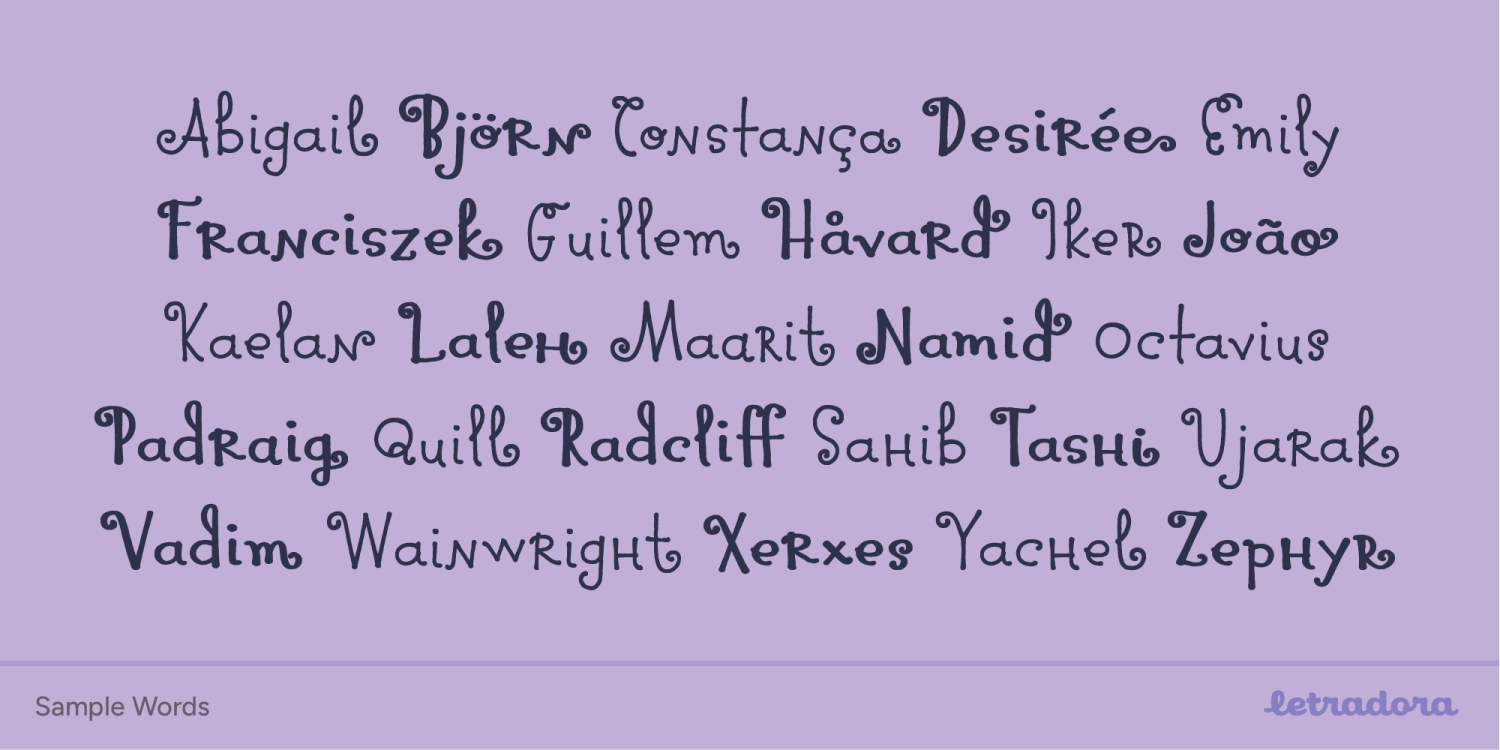 Abigail Björn Constança Desirée Emily
Franciszek Guillem Håvard Iker João
Kaelan Laleh Maarit Namid Octavius
Padraig Quill Radcliff Sahib Tashi Ujarak
Vadim Wainwright Xerxes Yachel Zephyr
Sample Words
letradora